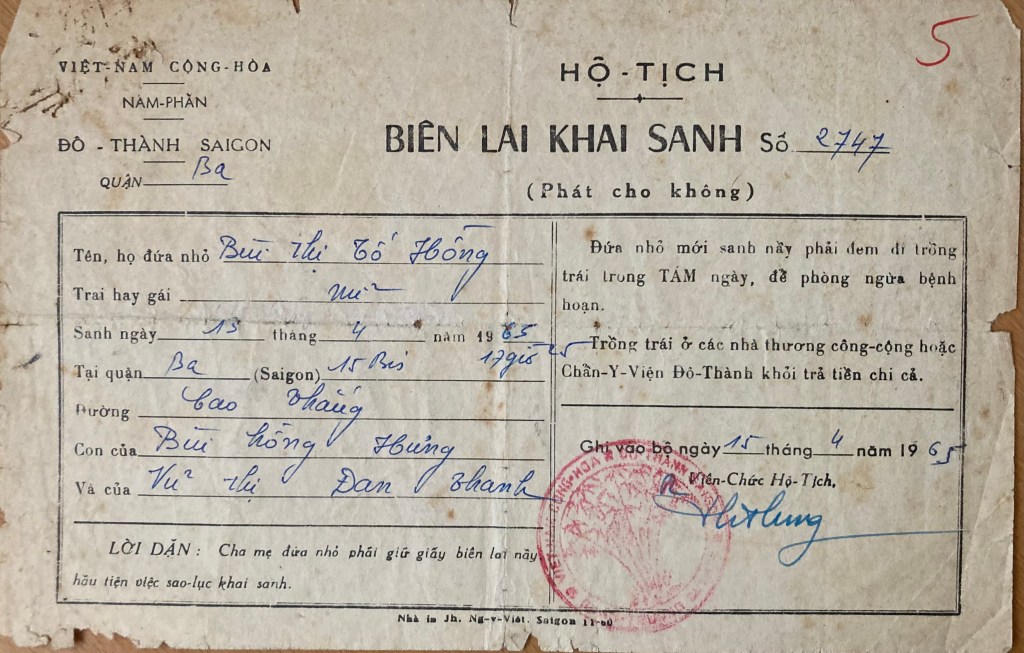 5
VIỆT-NAM CỘNG-HÒA
NAM-PHẦN
ĐÔ - THÀNH SAIGON
QUẬN Ba
HỘ - TỊCH
BIÊN LAI KHAI SANH Số 2747
(Phát cho không)
Tên, họ đứa nhỏ Bùi thị Tố Hồng
Trai hay gái nữ
Sanh ngày 13 tháng 4 năm 1965
17giờ 25
Tại quận Ba (Saigon) 15 Bis
Đường Cao Thắng
Con của Bùi Hồng Hưng
Và của Vũ thị Đan Thanh
LỜI DẶN : Cha mẹ đứa nhỏ phải giữ giấy biên lai nầy
hầu tiện việc sao-lục khai sanh.
Đứa nhỏ mới sanh nầy phải đem đi trồng
trái trong TÁM ngày, để phòng ngừa bệnh
hoạn.
Trồng trái ở các nhà thương công-cộng hoặc
Chẩn-Y-Viện Đô-Thành khỏi trả tiền chi cả.
Ghi vào bộ ngày 15 tháng 4 năm 1965
Viên-Chức Hộ-Tịch,
VIỆT-NAM CỘNG-HÒA
Nhà in Jh. Ng-v-Viết. Saigon 11-60